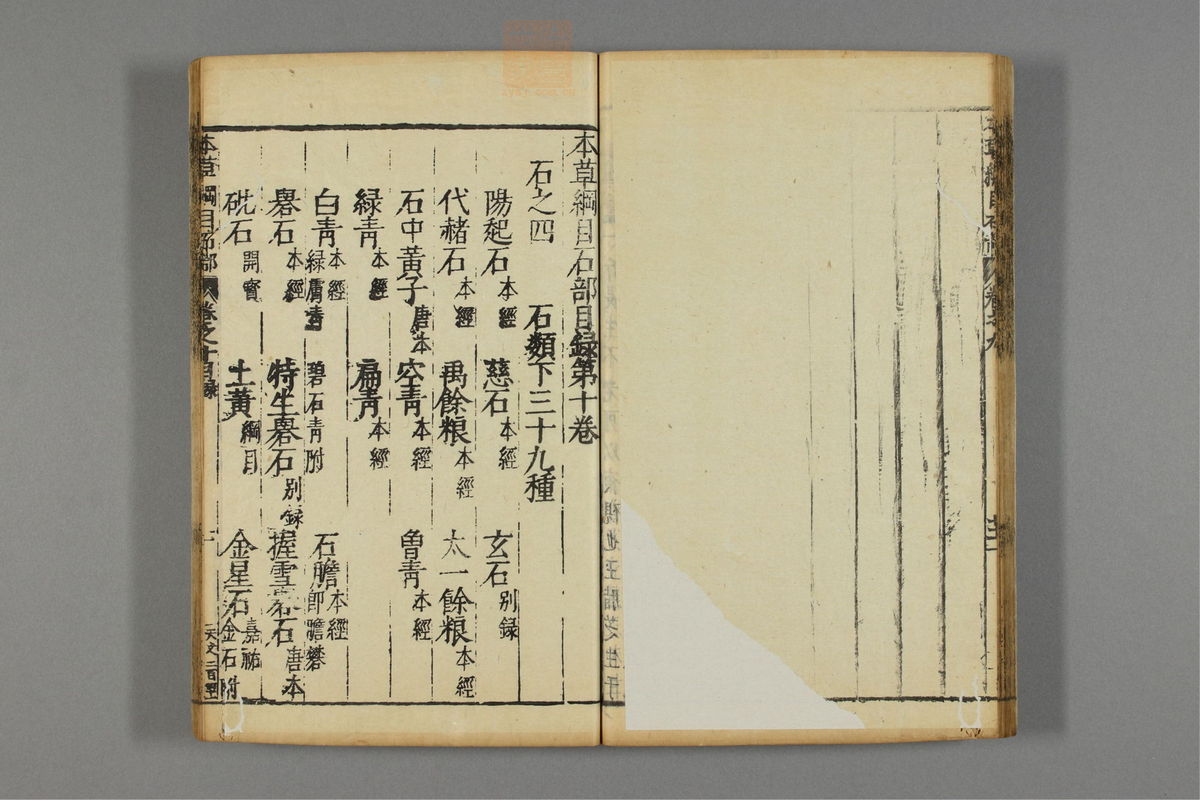 本草綱目石部目録第十卷
石之四 石類下三十九種
陽起石本經 慈石本經 玄石别録
代赭石本經 禹餘粮本經 太一餘粮本經
石中黃子唐本 空青本經 曾青本經
緑青本經 扁青本經
白青本經緑膚青 碧石青附 石膽本經即膽礬
礜石本經 特生礜石别録 握雪礜石唐本
砒石開寳 土黃綱目 金星石嘉祐金石附
本草綱目石部 卷之十目録